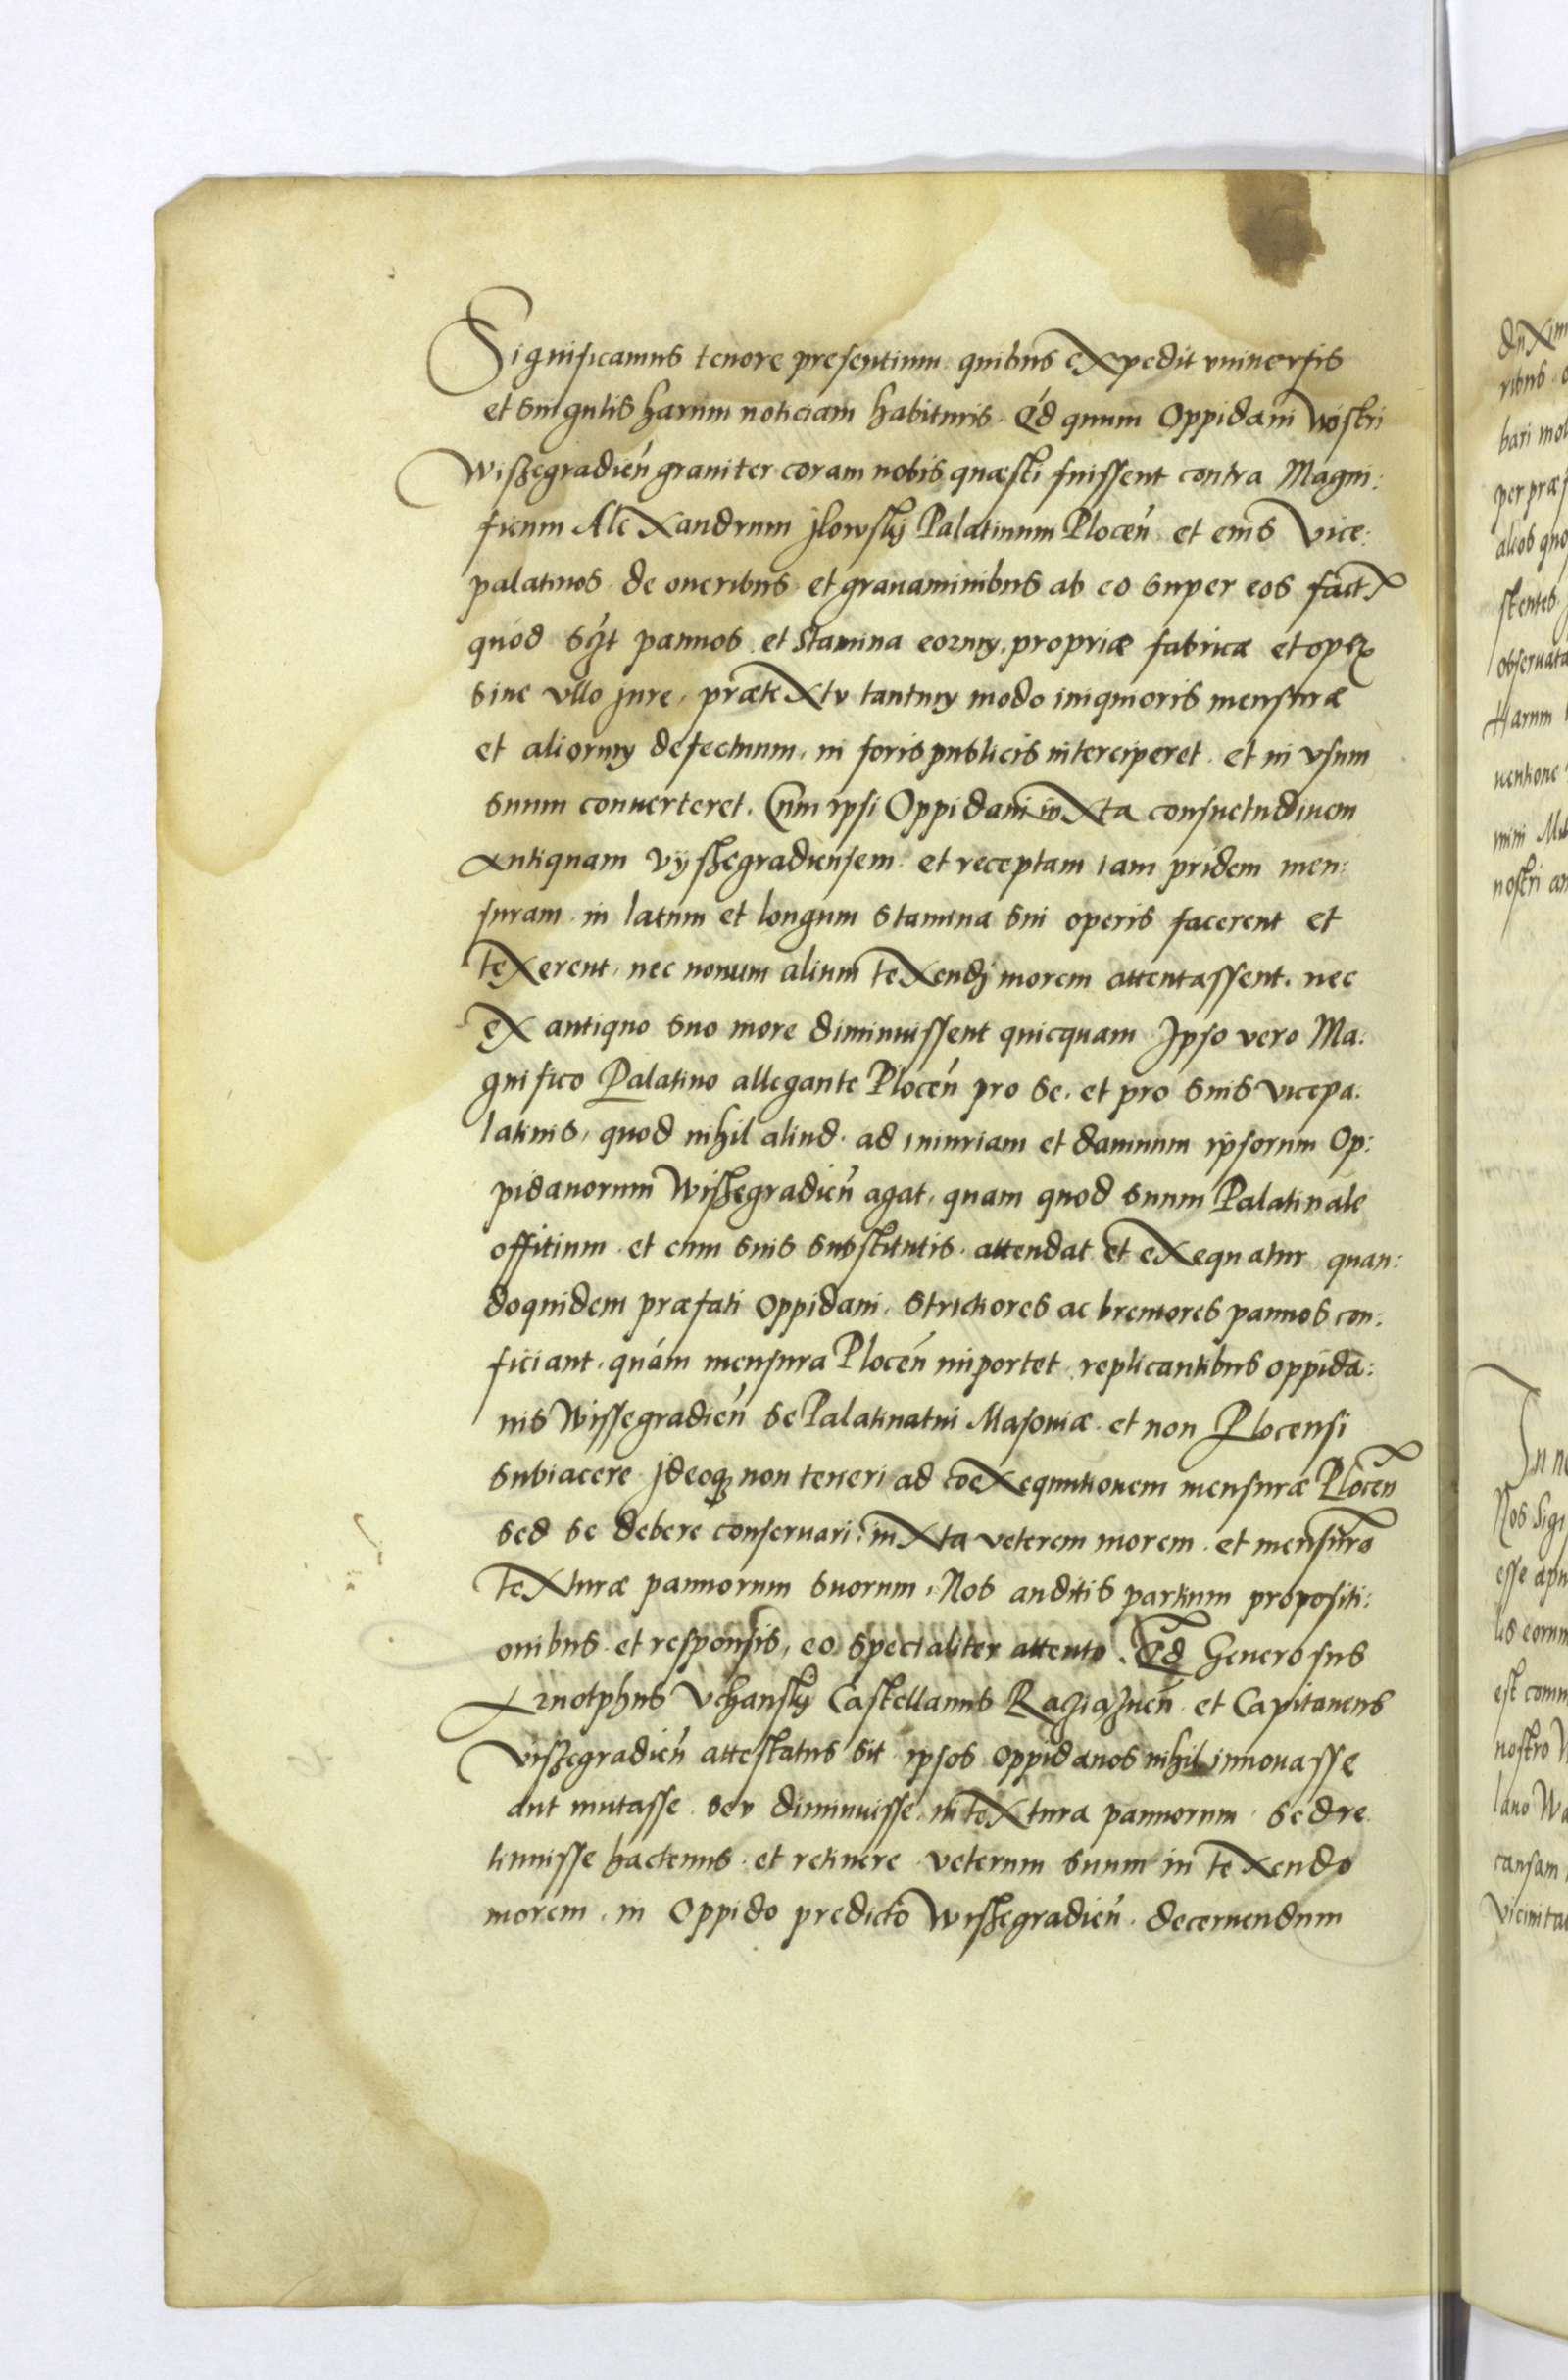 Significamus tenore presentium quibus expedit vniuersis
et singulis harum noticiam habituris. Qd quum Oppidani Nostri
Wisßegradien grauiter coram nobis quæsti fuissent contra Magni:
ficum Alexandrum Jlowsky Palatinum Plocen et eius Vice:
palatinos de oneribus et grauaminibus ab eo super eos fact
quod scz pannos et stamina eorum propriæ fabricæ et oper
sine vllo jure, prætextu tantum modo iniquioris mensuræ
et aliorum defectuum, in foris publicis interciperet et in vsum
suum conuerteret. Cum ipsi Oppidani iuxta consuetudinem
antiquam Vyßegradiensem et receptam iam pridem men:
suram in latum et longum stamina sui operis facerent et
texerent, nec nouum alium texendi morem attentassent. nec
ex antiquo suo more diminuissent quicquam Jpso vero Ma:
gnifico Palatino allegante Plocen pro se, et pro suis vicepa:
latinis, quod nihil aliud ad iniuriam et damnum ipsorum Op:
pidanorum Wißegradien agat, quam quod suum Palatinale
offitium et cum suis substitutis attendat et exequatur quan:
doquidem præfati oppidani, strictiores ac breuiores pannos con:
ficiant, quàm mensura Plocen importet replicantibus oppida:
nis Wissegradien se Palatinatui Masouiæ et non Plocensi
subiacere Jdeoq non teneri ad coexequutionem mensuræ Plocen
sed se debere conseruari iuxta veterem morem et mensura
texturæ pannorum suorum, Nos auditis partium propositi:
onibus et responsis, eo specialiter attento. Qd Generosus
Arnolphus Vchansky Castellanus Raziazneń et Capitaneus
vißegradien attestatus sit ipsos oppidanos nihil innouasse
aut mutasse seu diminuisse in textura pannorum sed re
tinuisse hactenus et retinere veterum suum in texendo
morem, in Oppido predicto Wißegradien decernendum